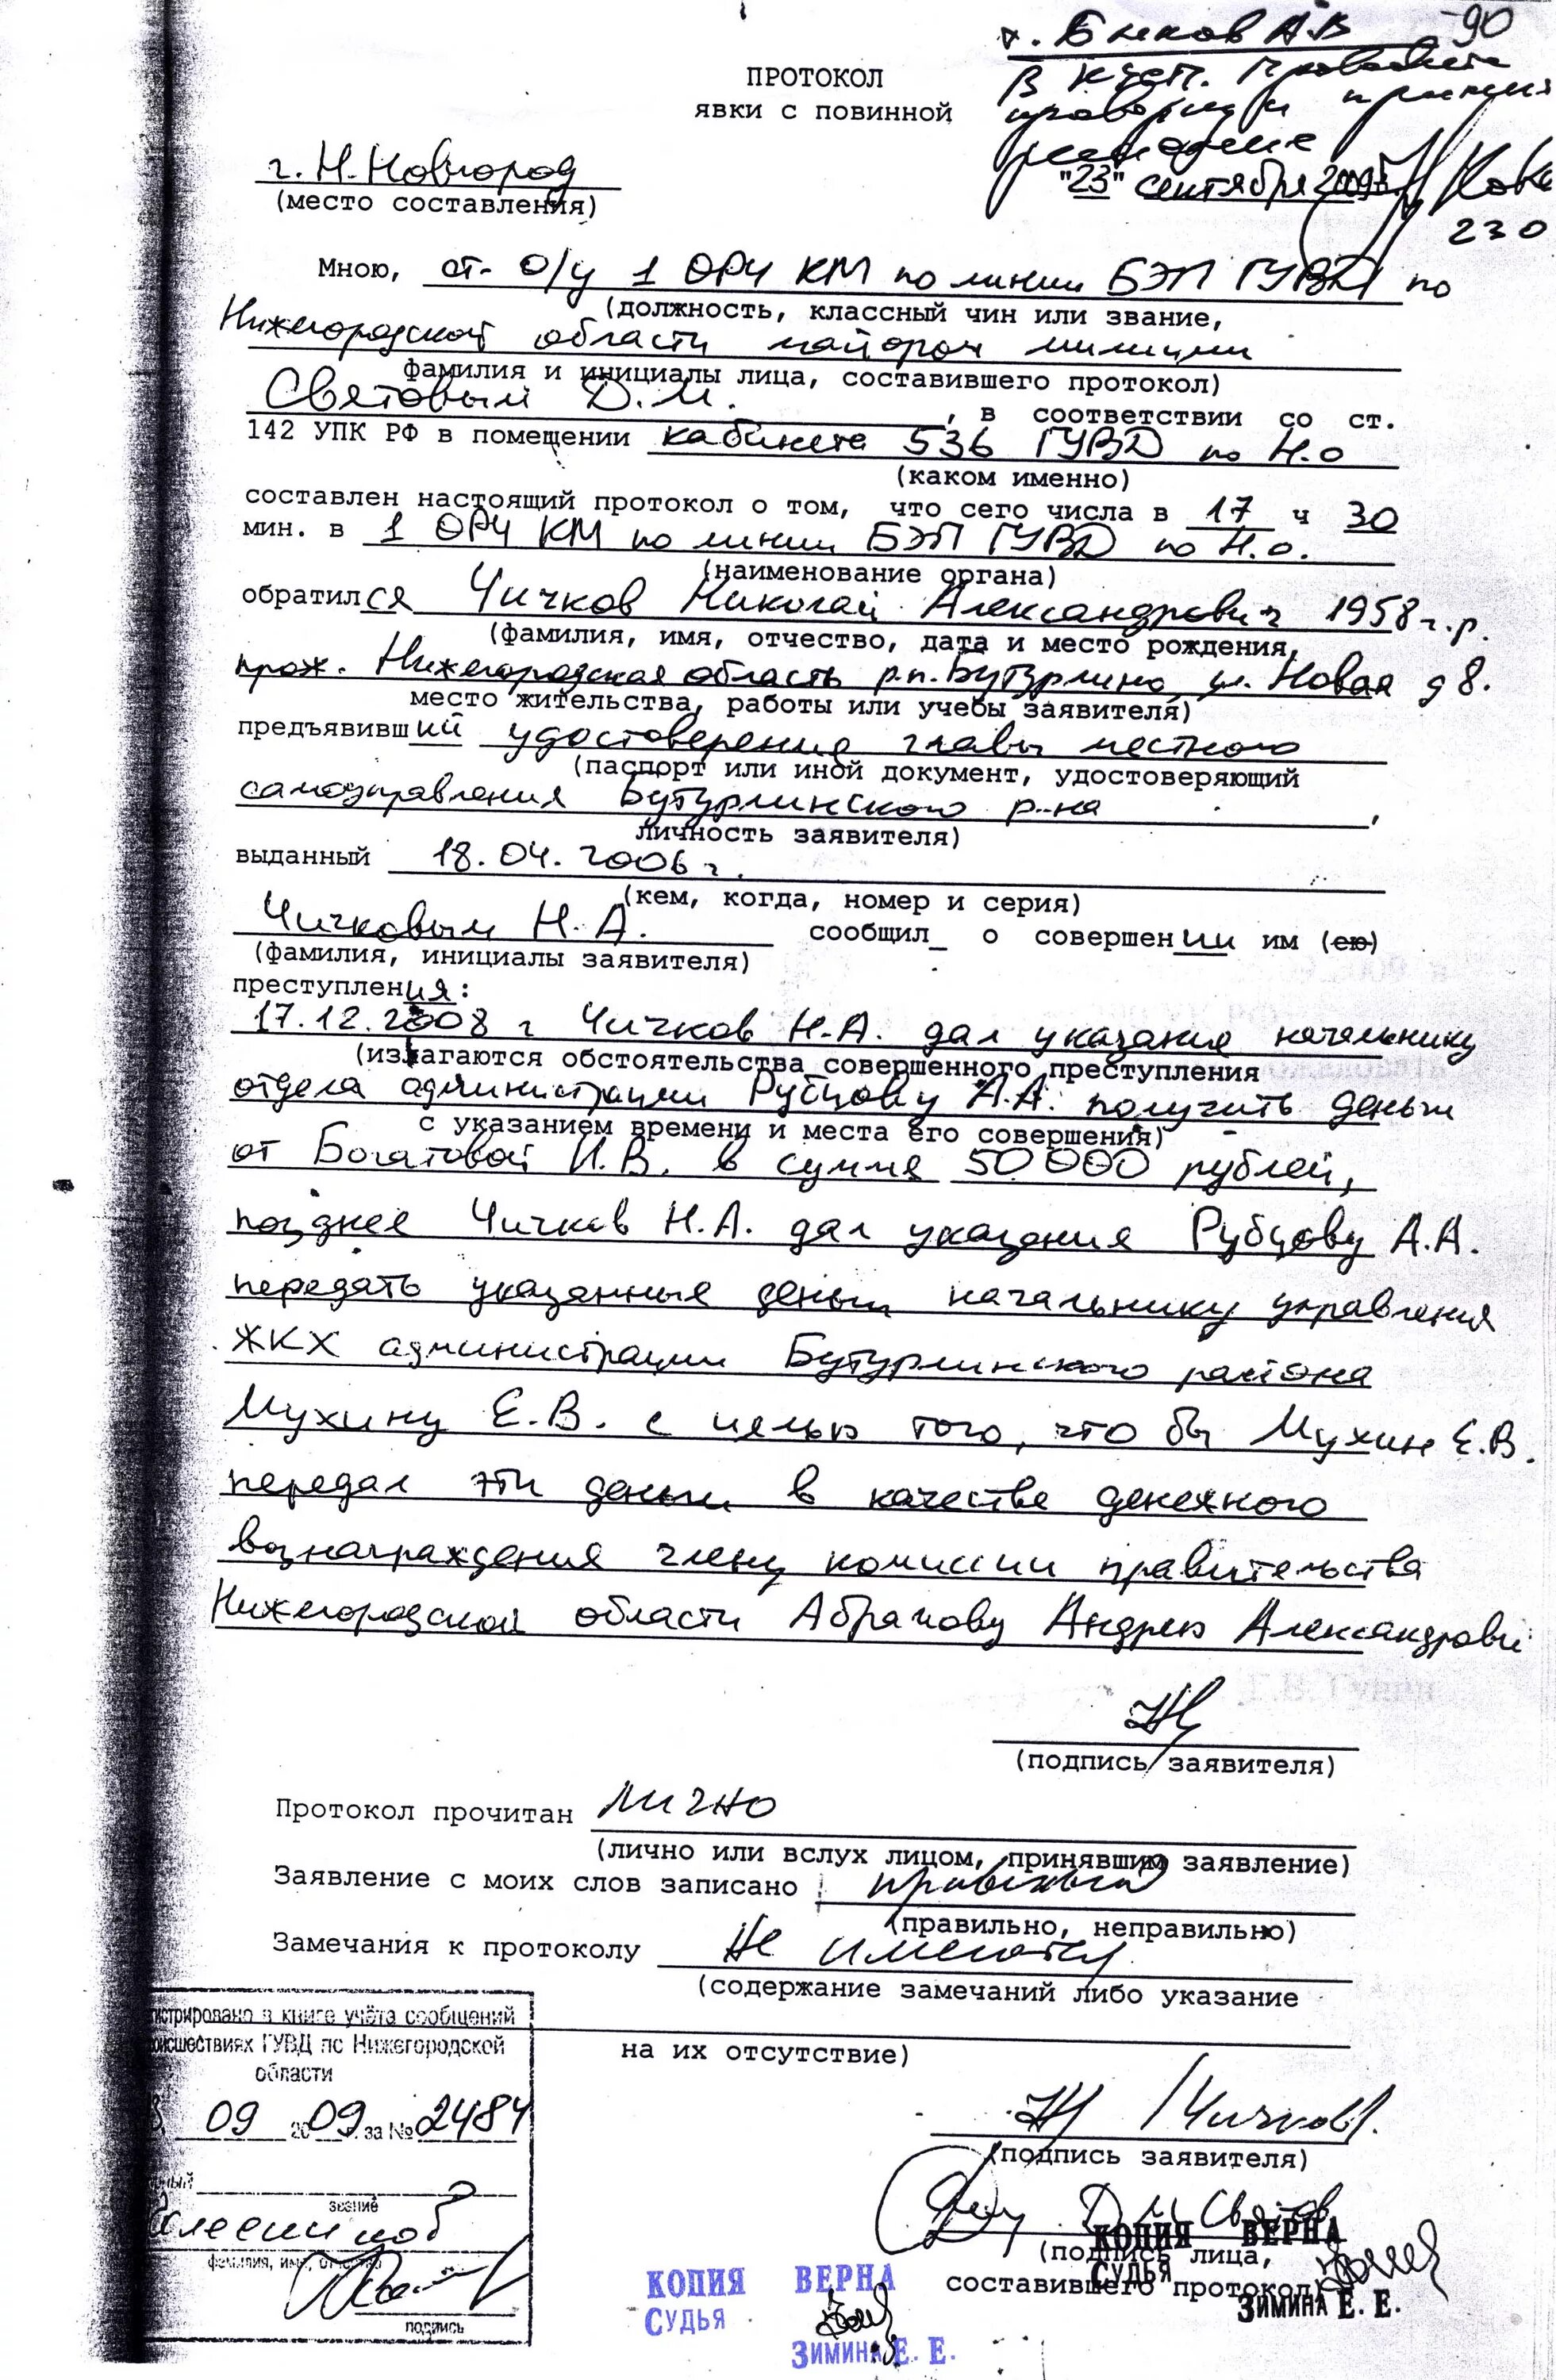 90
т. Быков А.В
ПРОТОКОЛ
явки с повинной
г. Н. Новгород
"23" сентября 2009
(место составления)
230
Мною, ст. о/у 1 ОРЧ КМ по линии БЭП ГУВД по
(должность, классный чин или звание,
Нижегородской области майором милиции
фамилия и инициалы лица, составившего протокол)
Световым Д.М. , в соответствии со ст.
142 УПК РФ в помещении кабинета 536 ГУВД по Н.о
(каком именно)
составлен настоящий протокол о том, что сего числа в 17 ч 30
мин. в 1 ОРЧ КМ по линии БЭП ГУВД по Н.о.
(наименование органа)
обратился Чичков Николай Александрович 1958 г.р.
(фамилия, имя, отчество, дата и место рождения,
прож. Нижегородская область р.п. Бутурлино, ул. Новая д 8.
место жительства, работы или учебы заявителя)
предъявивший удостоверение главы местного
(паспорт или иной документ, удостоверяющий
самоуправления Бутурлинского р-на ,
личность заявителя)
выданный 18.04.2006 г.
(кем, когда, номер и серия)
Чичковым Н.А. сообщил_ о совершении им (ею)
(фамилия, инициалы заявителя)
преступления:
17.12.2008 г Чичков Н.А. дал указание начальнику
(излагаются обстоятельства совершенного преступления
отдела администрации Рубцову А.А. получить деньги
с указанием времени и места его совершения)
от Богатовой И.В. в сумме 50 000 рублей,
позднее Чичков Н.А. дал указания Рубцову А.А.
передать указанные деньги начальнику управления
ЖКХ администрации Бутурлинского района
Мухину Е.В. с целью того, что бы Мухин Е.В.
передал эти деньги в качестве денежного
вознаграждения члену комиссии правительства
Нижегородской области Абрамову Андрею Александрови
(подпись заявителя)
Протокол прочитан лично
(лично или вслух лицом, принявшим заявление)
Заявление с моих слов записано правильно
(правильно, неправильно)
Замечания к протоколу Не имеются
(содержание замечаний либо указание
на их отсутствие)
истрировано в книге учёта сообщений
оисшествиях ГУВД по Нижегородской
области
09 2009 за № 2484
звание
фамилия, имя, отчество
подпись
/Чичков/.
(подпись заявителя)
Д М Светов
(подпись лица,
составившего протокол)
КОПИЯ ВЕРНА
СУДЬЯ
ЗИМИНА Е. Е.
КОПИЯ ВЕРНА
СУДЬЯ
ЗИМИНА Е. Е.